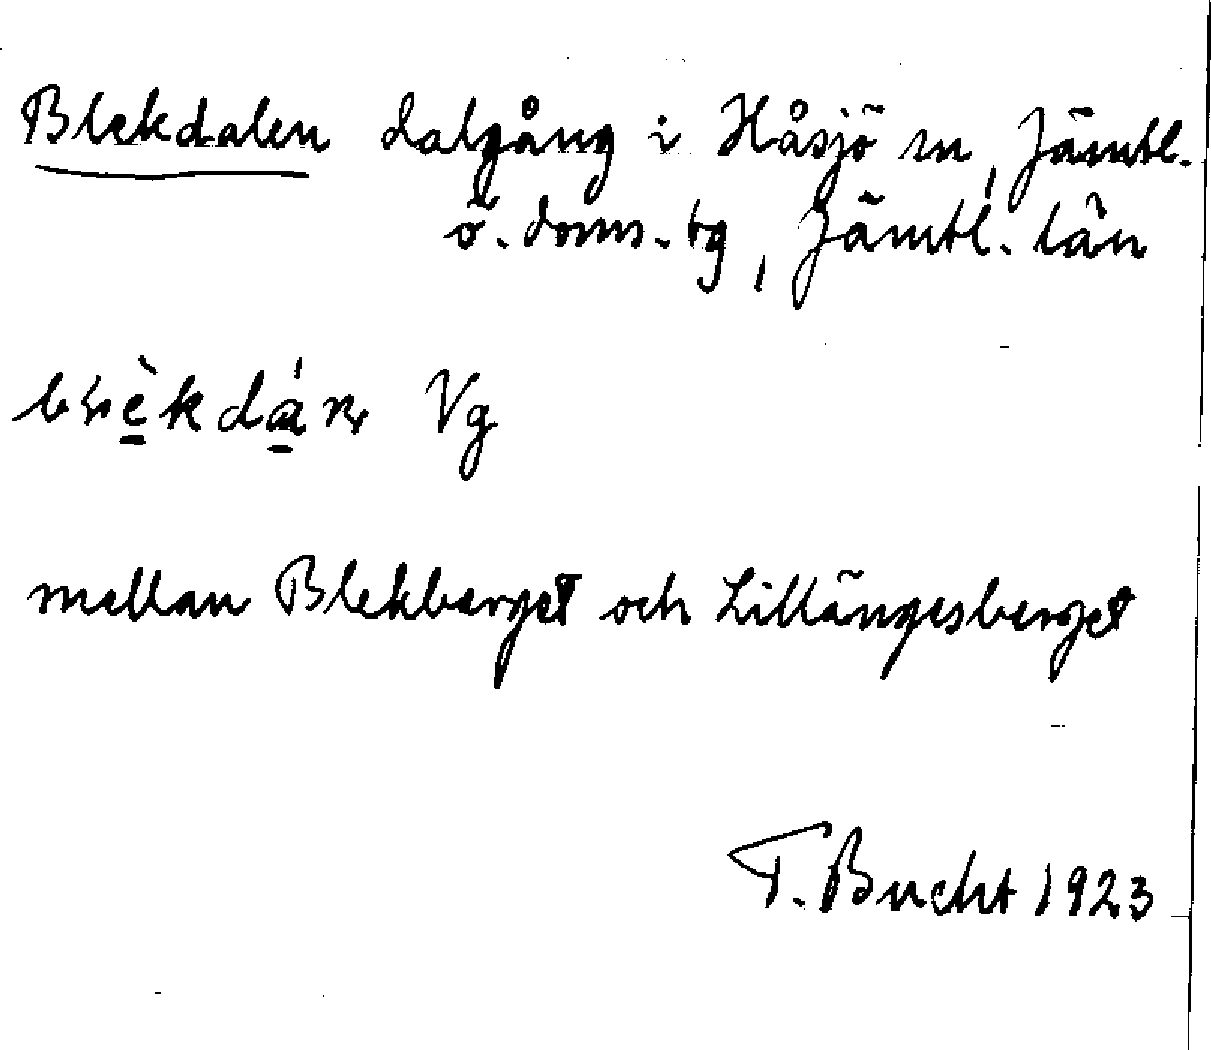 Blekdalen dalgång i Håsjö sn, Jämtl.
ö. doms. tg, Jämtl. län
Vg
mellan Blekberget och Lillängesberget
T. Bucht 1923